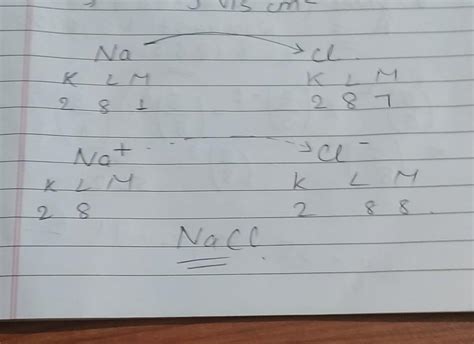 Na Cl
K L M K L M
2 8 1 2 8 7
Na+ Cl-
K L M K L M
2 8 2 8 8
NaCl